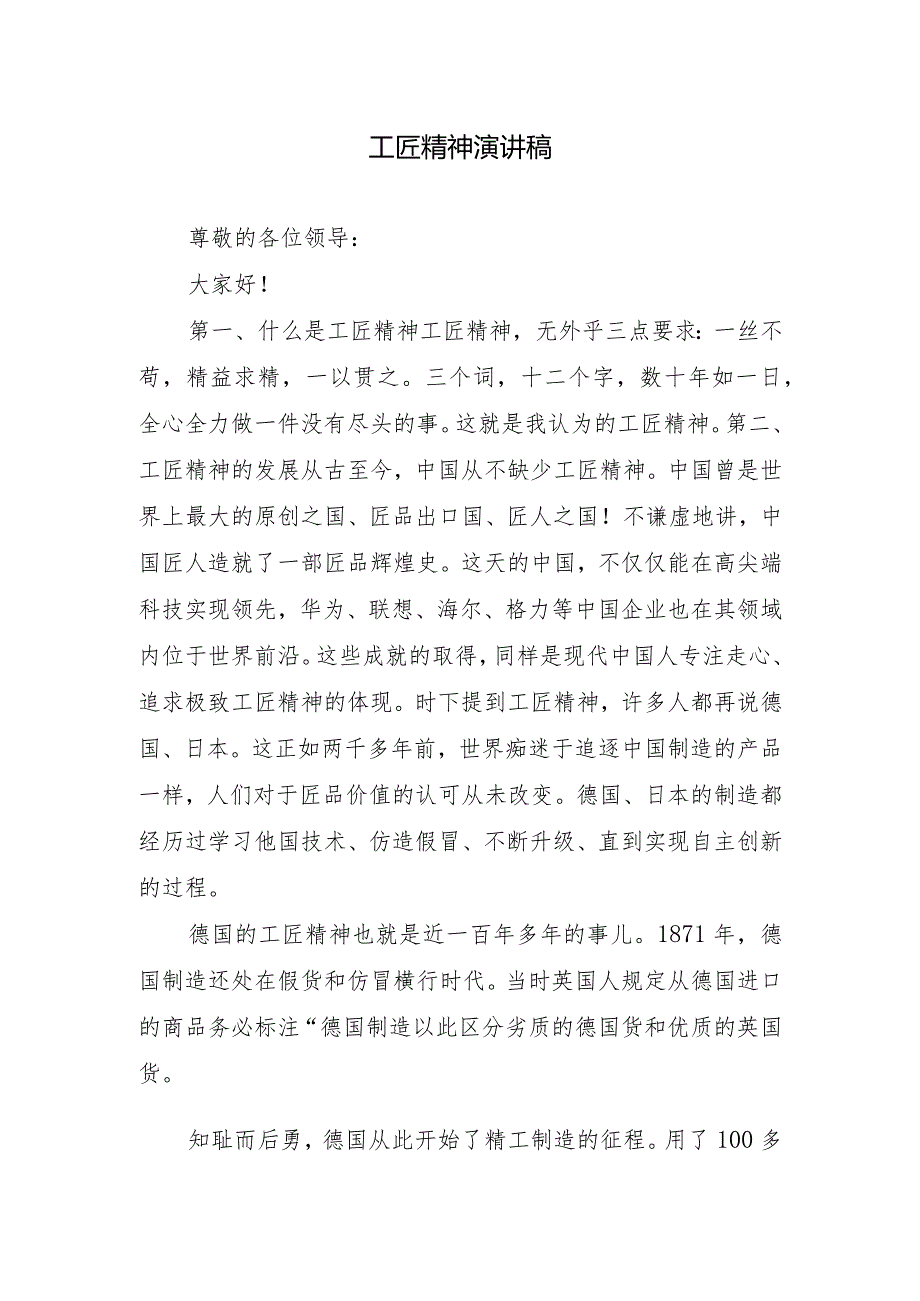 工匠精神演讲稿
尊敬的各位领导：
大家好！
第一、什么是工匠精神工匠精神，无外乎三点要求：一丝不
苟，精益求精，一以贯之。三个词，十二个字，数十年如一日，
全心全力做一件没有尽头的事。这就是我认为的工匠精神。第二、
工匠精神的发展从古至今，中国从不缺少工匠精神。中国曾是世
界上最大的原创之国、匠品出口国、匠人之国！不谦虚地讲，中
国匠人造就了一部匠品辉煌史。这天的中国，不仅仅能在高尖端
科技实现领先，华为、联想、海尔、格力等中国企业也在其领域
内位于世界前沿。这些成就的取得，同样是现代中国人专注走心、
追求极致工匠精神的体现。时下提到工匠精神，许多人都再说德
国、日本。这正如两千多年前，世界痴迷于追逐中国制造的产品
一样，人们对于匠品价值的认可从未改变。德国、日本的制造都
经历过学习他国技术、仿造假冒、不断升级、直到实现自主创新
的过程。
德国的工匠精神也就是近一百年多年的事儿。1871 年，德
国制造还处在假货和仿冒横行时代。当时英国人规定从德国进口
的商品务必标注“德国制造以此区分劣质的德国货和优质的英国
货。
知耻而后勇，德国从此开始了精工制造的征程。用了 100 多